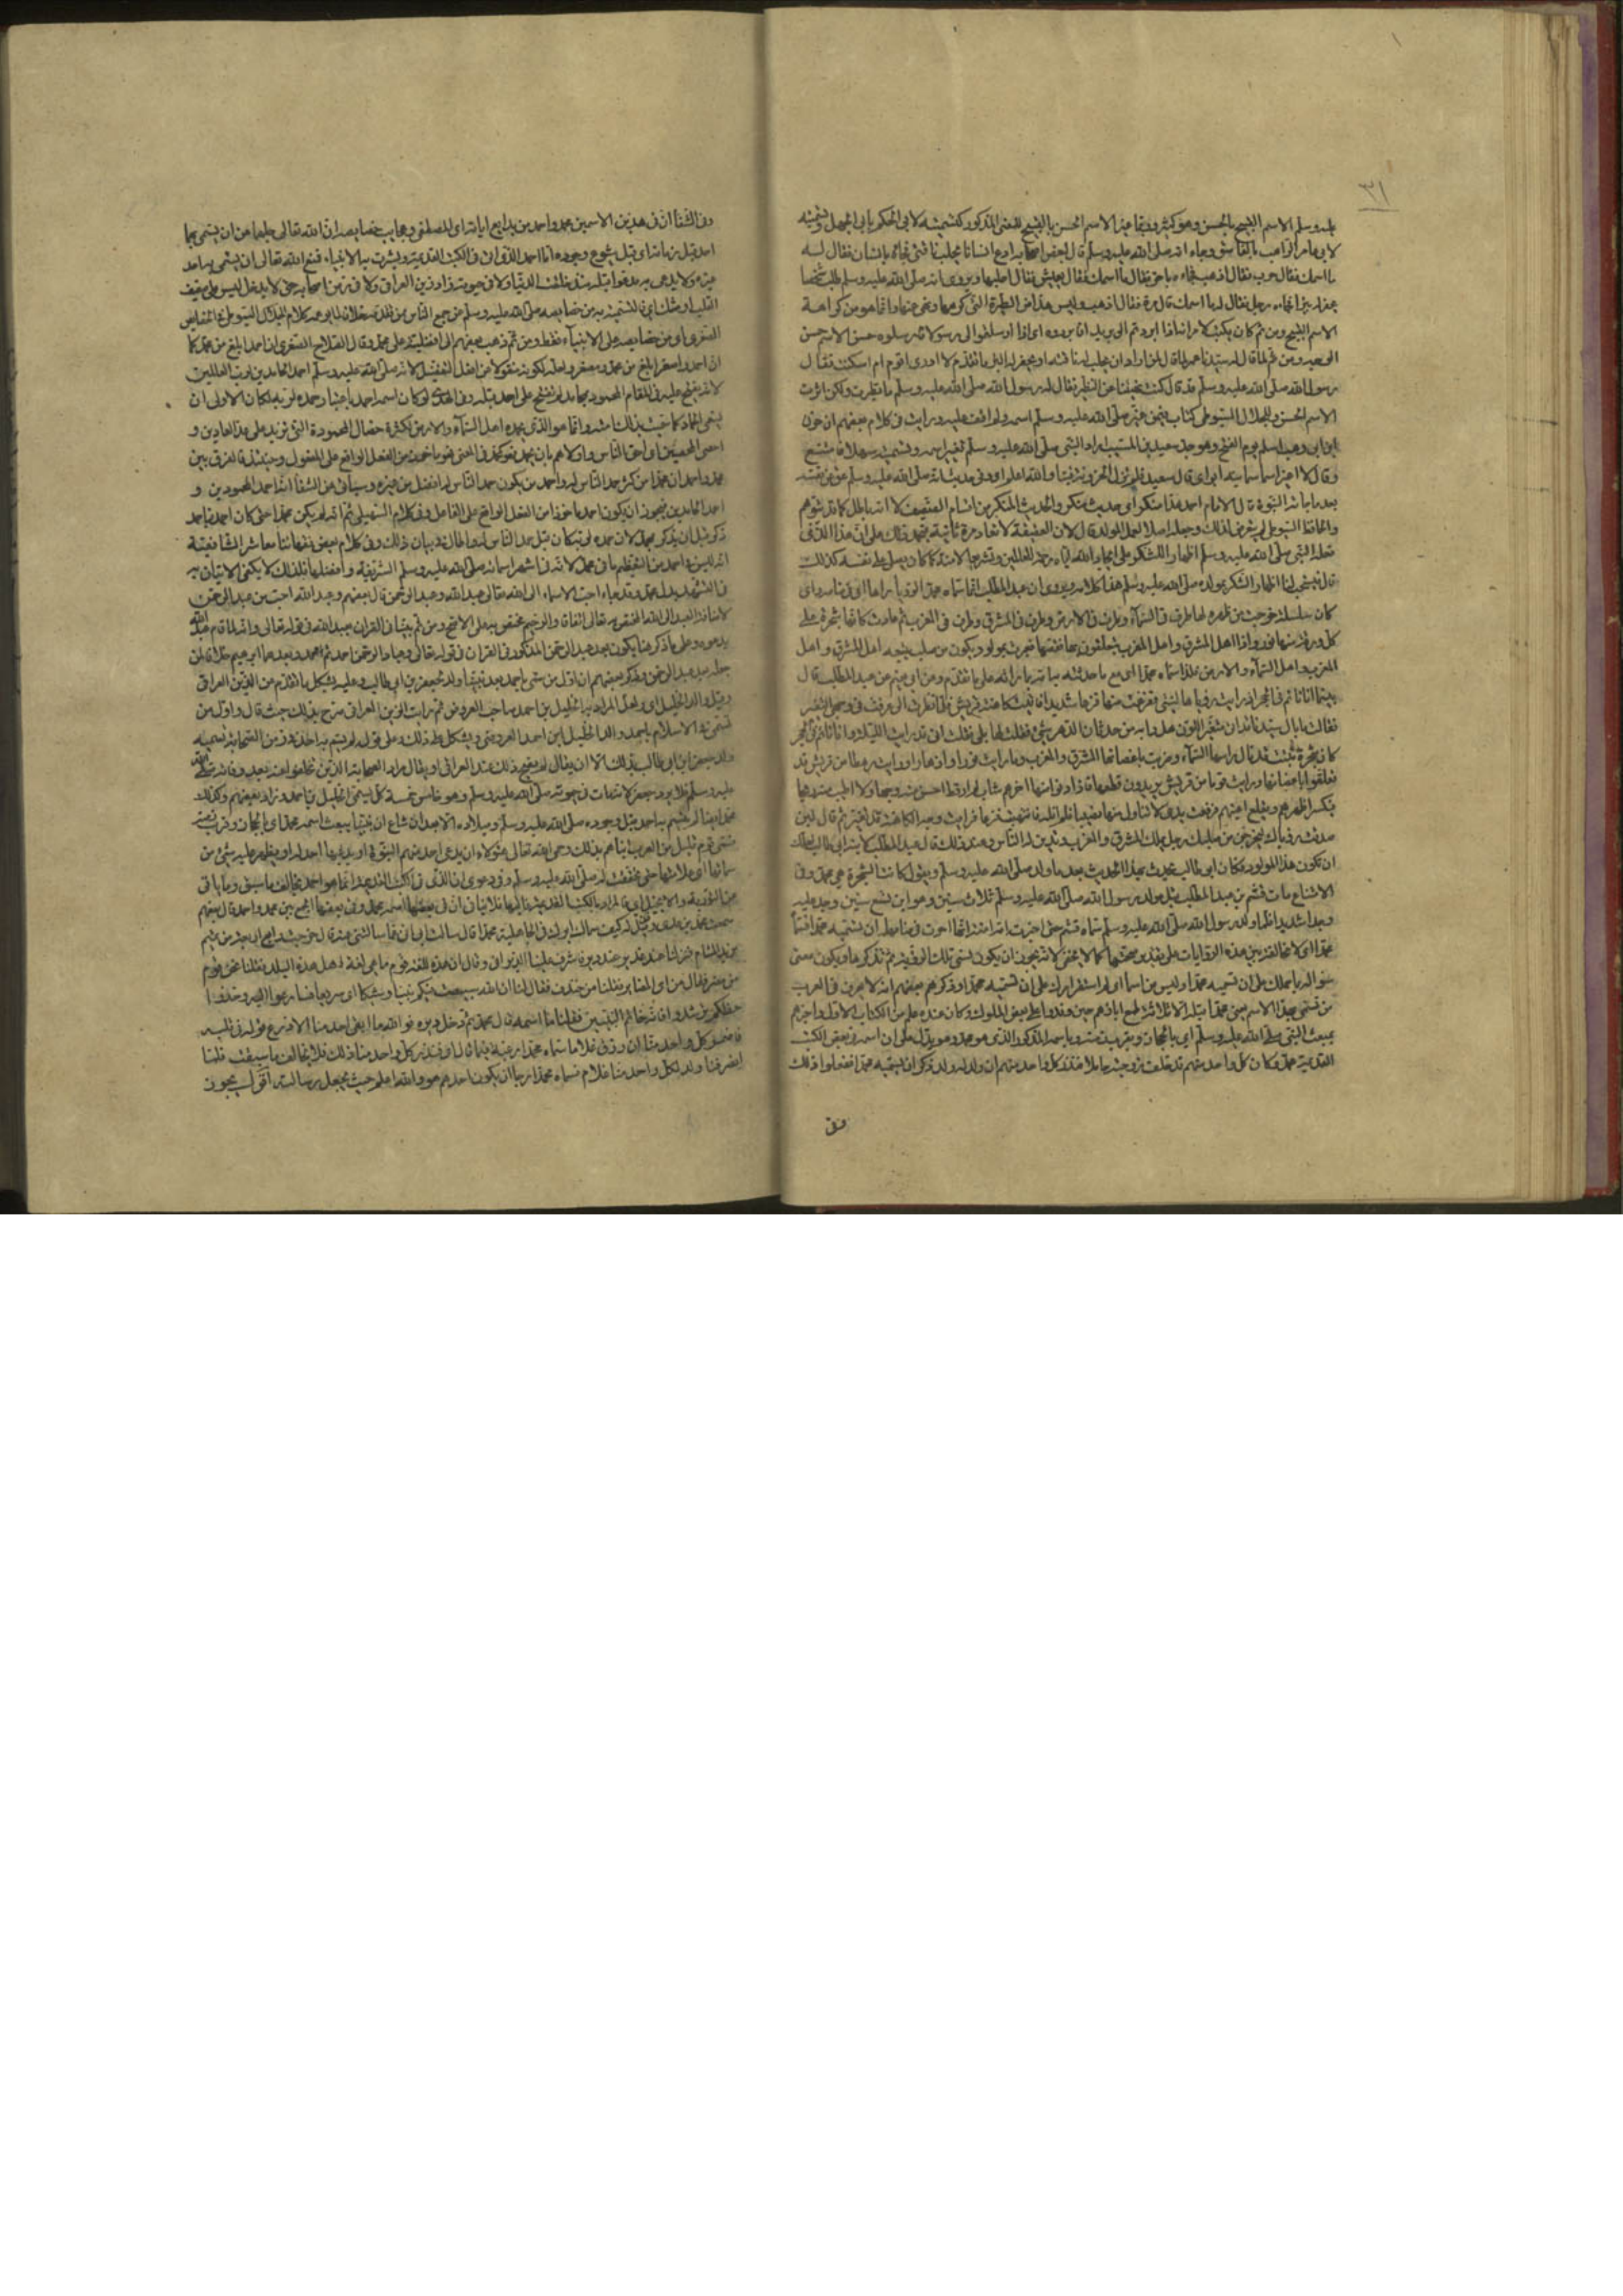 ٣١
عليه وسلم الاسم القبيح بالحسن وهو كثير وربما غير الاسم الحسن بالقبيح للمعنى المذكور كتسميته لابى الحكم بابى الجهل وتسميته
لابى عامر الراهب بالفاسق وجاء انه صلى الله عليه وسلم قال لبعض اصحابه ادع انسانا يحلب ناقتى فجاءه بانسان فقال له
ما اسمك فقال حرب فقال اذهب فجاءه باخر فقال ما اسمك فقال يعيش فقال احلبها ويروى انه صلى الله عليه وسلم طلب شخصا
يحفر له بئرا فجاءه رجل فقال له ما اسمك قال مرة فقال اذهب وليس هذا من الطيرة التى كرهها ونهى عنها وانما هو من كراهة
الاسم القبيح ومن ثم كان يكتب لامرائه اذا ابردتم الى بريدا فابردوه اى اذا ارسلتم الى رسولا فارسلوه حسن الاسم حسن
الوجه ومن ثم لما قال له سيدنا عمر لما قال لمن اراد ان يحلب له ناقته او يحفر له البئر ما تقدم لا ادرى اقوم ام اسكت فقال
رسول الله صلى الله عليه وسلم قد كنت نهيتنا عن التطير فقال له رسول الله صلى الله عليه وسلم ما تطيرت ولكن اثرت
الاسم الحسن وللجلال السيوطى كتاب فيمن غير صلى الله عليه وسلم اسمه ولم اقف عليه ورايت فى كلام بعضهم ان حزن
ابن ابى وهب اسلم يوم الفتح وهو جد سعيد بن المسيب اراد النبى صلى الله عليه وسلم تغيير اسمه وتسميته سهلا فامتنع
وقال لا اغير اسما سمانيه ابى اى قال سعيد فلم تزل الحزونة فينا والله اعلم
بعد ما جاءته النبوة قال الامام احمد هذا منكر اى حديث منكر والحديث المنكر من اقسام الضعيف لا انه باطل كما قد يتوهم
والحافظ السيوطى لم يتعرض لذلك وجعله اصلا لعمل المولد قال لان العقيقة لا تعاد مرة ثانية فيحمل ذلك على ان هذا الذى
فعله النبى صلى الله عليه وسلم اظهار للشكر على ايجاد الله اياه رحمة للعالمين وتشريعا لامته كما كان يصلى على نفسه كذلك
قال فيستحب لنا اظهار الشكر بمولده صلى الله عليه وسلم هذا كلامه ويروى ان عبد المطلب انما سماه محمدا لرؤيا راها اى فى منامه راى
كان سلسلة خرجت من ظهره لها طرف فى السماء وطرف فى الارض وطرف فى المشرق وطرف فى المغرب ثم عادت كانها شجرة على
كل ورقة منها نور واذا اهل المشرق واهل المغرب يتعلقون بها فقصها فعبرت بمولود يكون من صلبه يتبعه اهل المشرق واهل
المغرب واهل السماء والارض فلذا سماه محمدا اى مع ما حدثته به امه
بينما انا نائم فى الحجر اذ رايت رؤيا هالتنى ففزعت منها فزعا شديدا فاتيت كاهنة قريش فلما نظرت الى عرفت فى وجهى التغير
فقالت ما بال سيدنا قد اتى متغير اللون هل رابه من حدثان الدهر شىء فقلت لها بلى فقلت انى قد رايت الليلة وانا نائم فى الحجر
كان شجرة نبتت قد نال راسها السماء وضربت باغصانها المشرق والمغرب وما رايت نورا ازهر منها ورايت رهطا من قريش قد
تعلقوا باغصانها ورايت قوما من قريش يريدون قطعها فاذا دنوا منها اخرهم شاب لم ار قط احسن منه وجها ولا اطيب منه ريحا
فيكسر اظهرهم ويقلع اعينهم فرفعت يدى لاتناول منها نصيبا فلم انله فانتبهت فزعا فرايت وجه الكاهنة قد تغير ثم قال لئن
صدقت رؤياك ليخرجن من صلبك رجل يملك المشرق والمغرب وتدين له الناس وعند ذلك قال عبد المطلب لابنه ابى طالب لعلك
ان تكون هذا المولود فكان ابو طالب يحدث بهذا الحديث بعد ما ولد صلى الله عليه وسلم ويقول كانت الشجرة هى محمد وفى
الامتاع مات قثم بن عبد المطلب قبل مولد رسول الله صلى الله عليه وسلم بثلاث سنين وهو ابن تسع سنين وجد عليه
وجدا شديدا فلما ولد رسول الله صلى الله عليه وسلم سماه قثم حتى اخبرته امه امنة انها امرت فى منامها ان تسميه محمدا فسماه
محمدا اى لا مخالفة بين هذه الروايات على تقدير صحتها كما لا يخفى لانه يجوز ان يكون نسى تلك الرؤية ثم تذكرها ويكون معنى
سؤاله ما حملك على ان تسميه محمدا وليس من اسماء ابائك اى لم استقر امرك على ان تسميه محمدا وذكر بعضهم انه لا يعرف فى العرب
من تسمى بهذا الاسم يعنى محمدا قبله الا ثلاثة طمع اباؤهم حين وفدوا على بعض الملوك وكان عنده علم من الكتاب الاول واخبرهم
بمبعث النبى صلى الله عليه وسلم اى بالحجاز وبقرب زمنه وباسمه المذكور الذى هو محمد وهو يدل على ان اسمه فى بعض الكتب
القديمة محمد وكان كل واحد منهم قد خلف زوجته حاملا فنذر كل واحد منهم ان ولد له ولد ذكر ان يسميه محمدا ففعلوا ذلك
وفى
وفى الشفا ان فى هذين الاسمين محمد واحمد من بدايع اياته اى المصطفى وعجايب خصايصه ان الله تعالى حماهما عن ان يتسمى بهما
احد قبل زمانه اى قبل شيوع وجوده اما احمد الذى اتى فى الكتب القديمة وبشرت به الانبياء فمنع الله تعالى ان يتسمى به احد
غيره ولا يدعى به مدعو قبله منذ خلقت الدنيا ولا فى حيوته زاد زين العراقى ولا فى زمن اصحابه حتى لا يدخل لبس على ضعيف
القلب او شك اى فالتسمية به من خصايصه صلى الله عليه وسلم من جميع الناس ممن تقدمه خلافا لما يوهمه كلام الجلال السيوطى فى الخصايص
الصغرى اى من خصايصه على الانبياء فقط ومن ثم ذهب بعضهم الى افضليته على محمد وقال الصلاح الصفدى ان احمد ابلغ من محمد كما
ان احمر واصفر ابلغ من محمر ومصفر ولعله لكونه منقولا عن افعل التفضيل لانه صلى الله عليه وسلم احمد الحامدين لرب العالمين
لانه يفتح عليه فى المقام المحمود بمحامد لم تفتح على احد قبله وفى الهدى لو كان اسمه احمد باعتبار حمده لربه لكان الاولى ان
يسمى الحماد كما سميت بذلك امته وانما هو الذى يحمده اهل السماء والارض لكثرة خصال المحمودة التى تزيد على عد العادين و
احصاء المحصين اى احق الناس واولاهم بان يحمد فهو كمحمد فى المعنى فهو ماخوذ من الفعل الواقع على المفعول وحينئذ فالفرق بين
محمد واحمد ان محمدا من كثر حمد الناس له واحمد من يكون حمد الناس له افضل من غيره وسياتى عن الشفا انه احمد المحمودين و
احمد الحامدين فيجوز ان يكون احمد ماخوذا من الفعل الواقع على الفاعل وفى كلام السهيلى ثم انه لم يكن محمدا حتى كان احمد فباحمد
ذكر قبل ان يذكر بمحمد لان حمده لربه كان قبل حمد الناس له واطال فى بيان ذلك وفى كلام بعض فقهائنا معاشر الشافعية
انه ليس فى احمد من التعظيم ما فى محمد لانه اشهر اسمائه صلى الله عليه وسلم الشريفة وافضلها فلذلك لا يكفى الاتيان به
فى التشهد بدل محمد وقد جاء احب الاسماء الى الله تعالى عبد الله وعبد الرحمن قال بعضهم وعبد الله احب من عبد الرحمن
لاضافة العبد الى الله المختص به تعالى اتفاقا والرحيم مختص به على الاصح ومن ثم سمى نبينا فى القران بعبد الله فى قوله تعالى وانه لما قام عبد الله
يدعوه وعلى ما ذكر هنا يكون بعد عبد الرحمن المذكور فى القران فى قوله تعالى وعباد الرحمن احمد ثم محمد وبعدهما ابراهيم خلافا لمن
جعله بعد عبد الرحمن وذكر بعضهم ان اول من تسمى باحمد بعد نبينا ولد لجعفر بن ابى طالب وعليه يشكل ما تقدم عن الزين العراقى
وقيل والد الخليل اى ولعل المراد به الخليل بن احمد صاحب العروض ثم رايت الزين العراقى صرح بذلك حيث قال واول من
تسمى فى الاسلام باحمد والد الخليل ابن احمد العروضى ويشكل على ذلك وعلى قوله لم يتسم به احد فى زمن الصحابة تسمية
ولد جعفر ابن ابى طالب بذلك الا ان يقال لم يصح ذلك عند العراقى او يقال مراده الصحابة الذين تخلفوا عنه بعد وفاته صلى الله
عليه وسلم فلا يرد جعفر لانه مات فى حيوته صلى الله عليه وسلم وهو خامس خمسة كل يسمى الخليل بن احمد وزاد بعضهم وكذلك
محمد ايضا لم يتسم به احد قبل وجوده صلى الله عليه وسلم وميلاده الا بعد ان شاع ان نبيا يبعث اسمه محمد اى بالحجاز وقرب زمنه
فسمى قوم قليل من العرب ابناءهم بذلك وحمى الله تعالى هؤلاء ان يدعى احد منهم النبوة او يدعيها احد له او يظهر عليه شىء من
سماتها اى علاماتها حتى تحققت له صلى الله عليه وسلم وفى دعوى ان الذى فى الكتب القديمة انما هو احمد مخالفة لما سبق وما ياتى
عن التورية والانجيل اى فالمراد بالكتب القديمة غالبها فلا ينافى ان فى بعضها اسمه محمد وفى بعضها الجمع بين محمد واحمد قال بعضهم
سمعت محمد بن عدى وقد قيل له كيف سماك ابوك فى الجاهلية محمدا قال سالت ابى عما سالتنى عنه قال خرجت رابع اربعة من تميم
نريد الشام فنزلنا عند غدير عند دير فاشرف علينا الديرانى وقال ان هذه للغة قوم ما هى لغة اهل هذه البلد فقلنا نحن قوم
من مضر فقال من اى المضاير فقلنا من خندف فقال لنا ان الله سيبعث فيكم نبيا وشيكا اى سريعا فسارعوا اليه وخذوا
حظكم منه ترشدوا فانه خاتم النبيين فقلنا ما اسمه قال محمد ثم دخل ديره فوالله ما بقى احد منا الا زرع قوله فى قلبه
فاضمر كل واحد منا ان رزق غلاما سماه محمدا رغبة فيما قاله اى فنذر كل واحد منا ذلك فلا يخالف ما سبق فلما
انصرفنا ولد لكل واحد منا غلام فسماه محمدا رجاء ان يكون احدهم هو والله اعلم حيث يجعل رسالته اقول يجوز